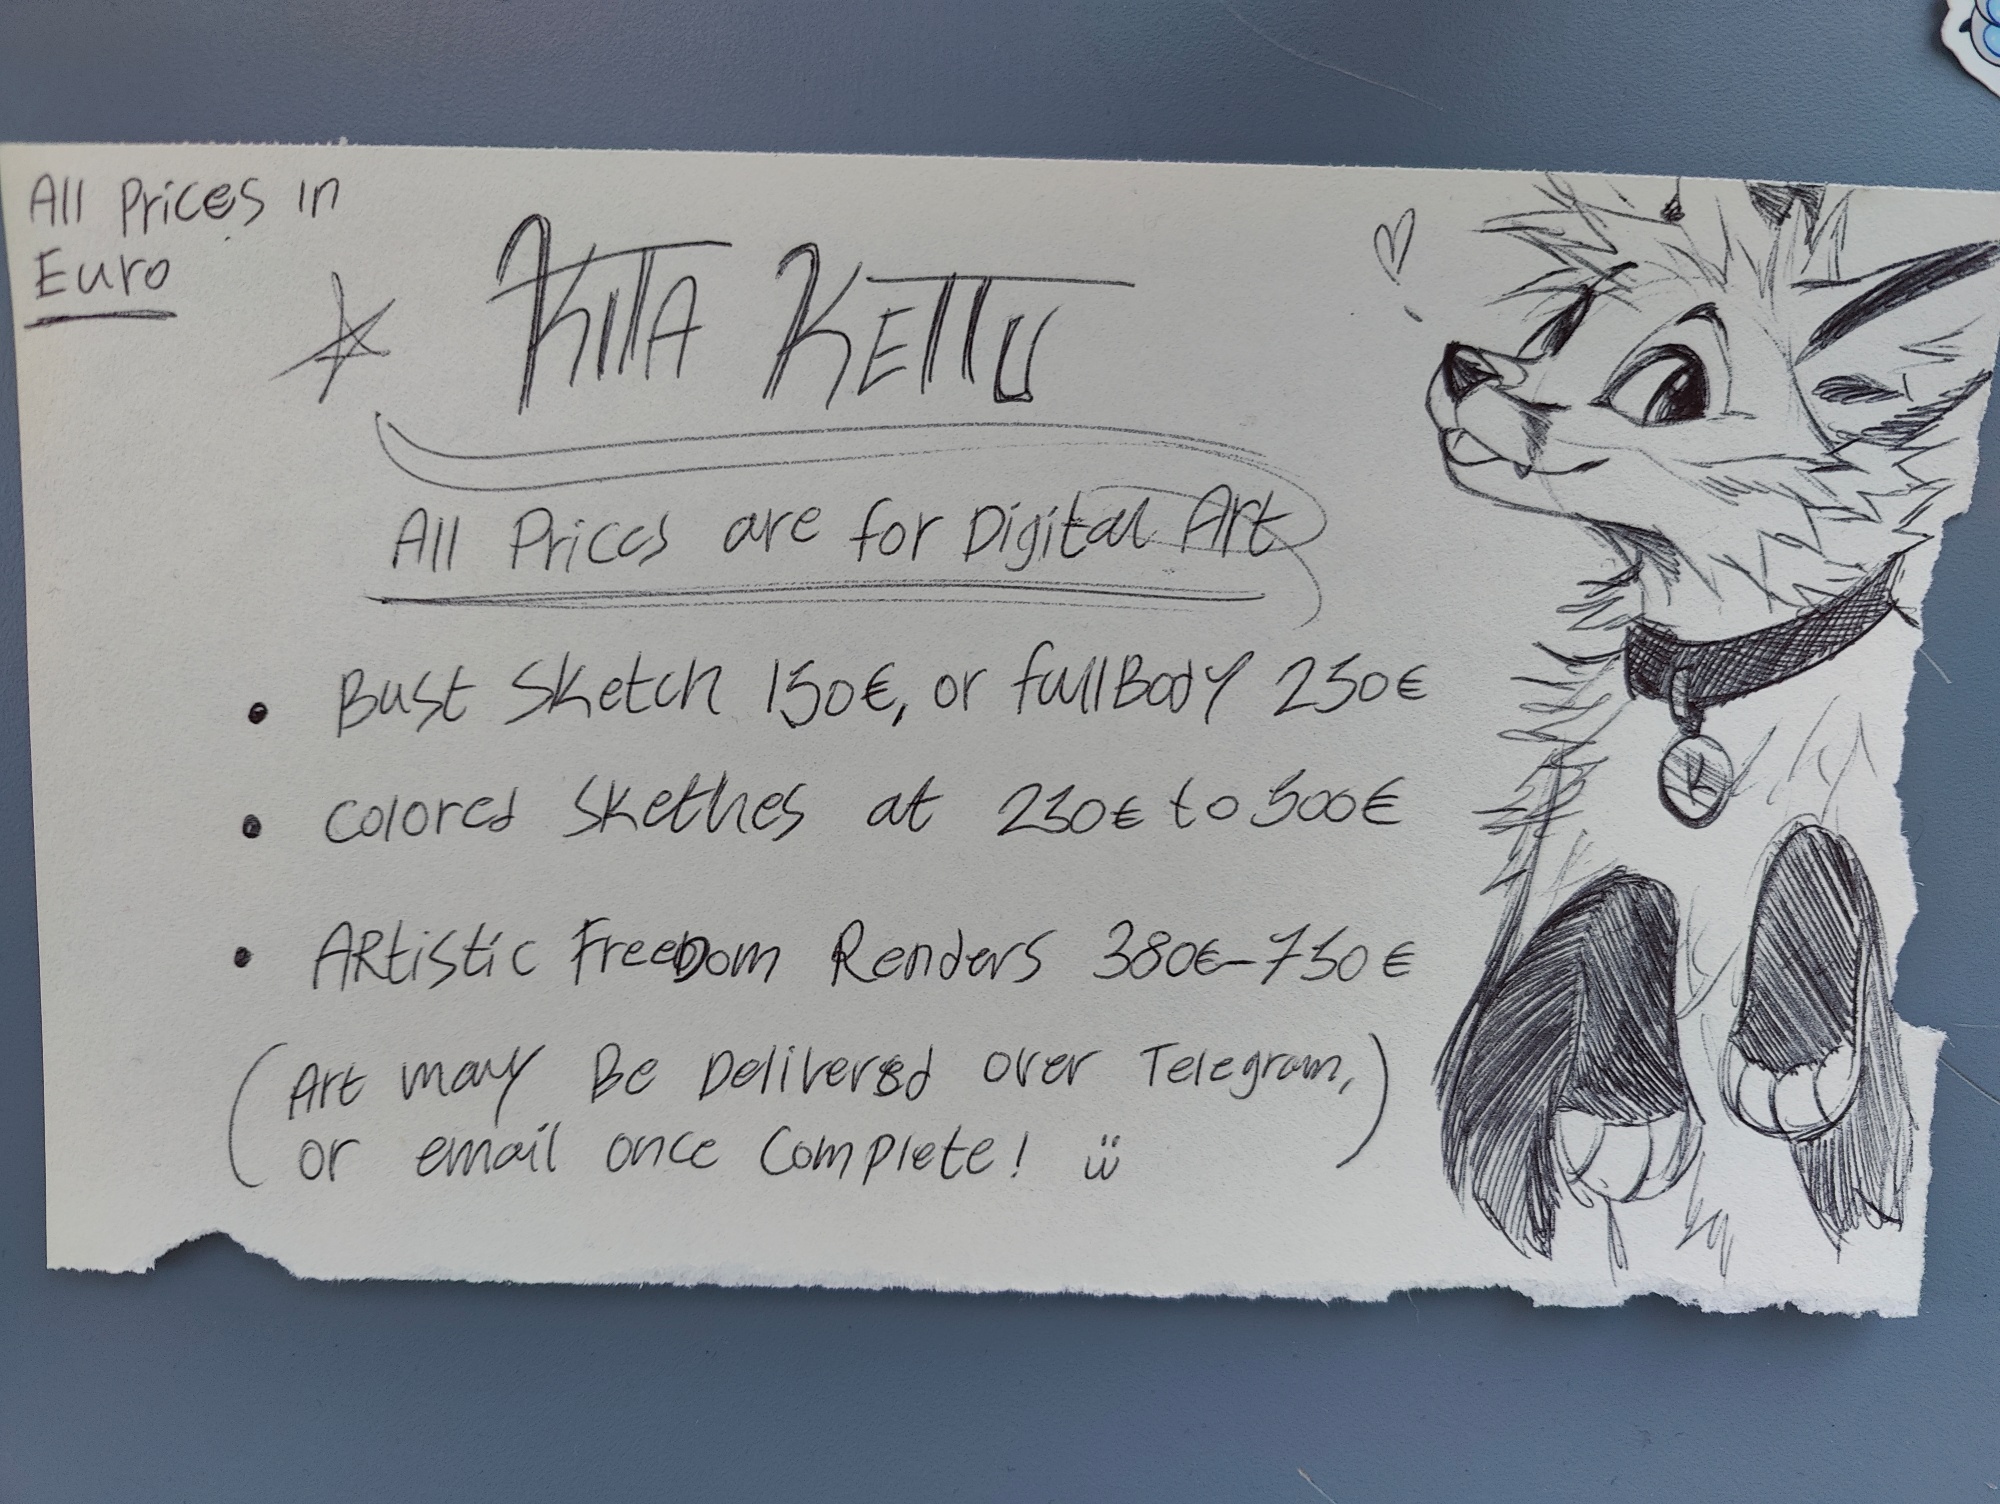 All Prices in
Euro
KITA KETTU
All Prices are for Digital Art
• Bust Sketch 150€, or fullBody 250€
• Colored Skethes at 250€ to 500€
• ARtistic FreeDom Renders 380€-750€
(Art may Be Delivered over Telegram,
or email once Complete! ü)
K